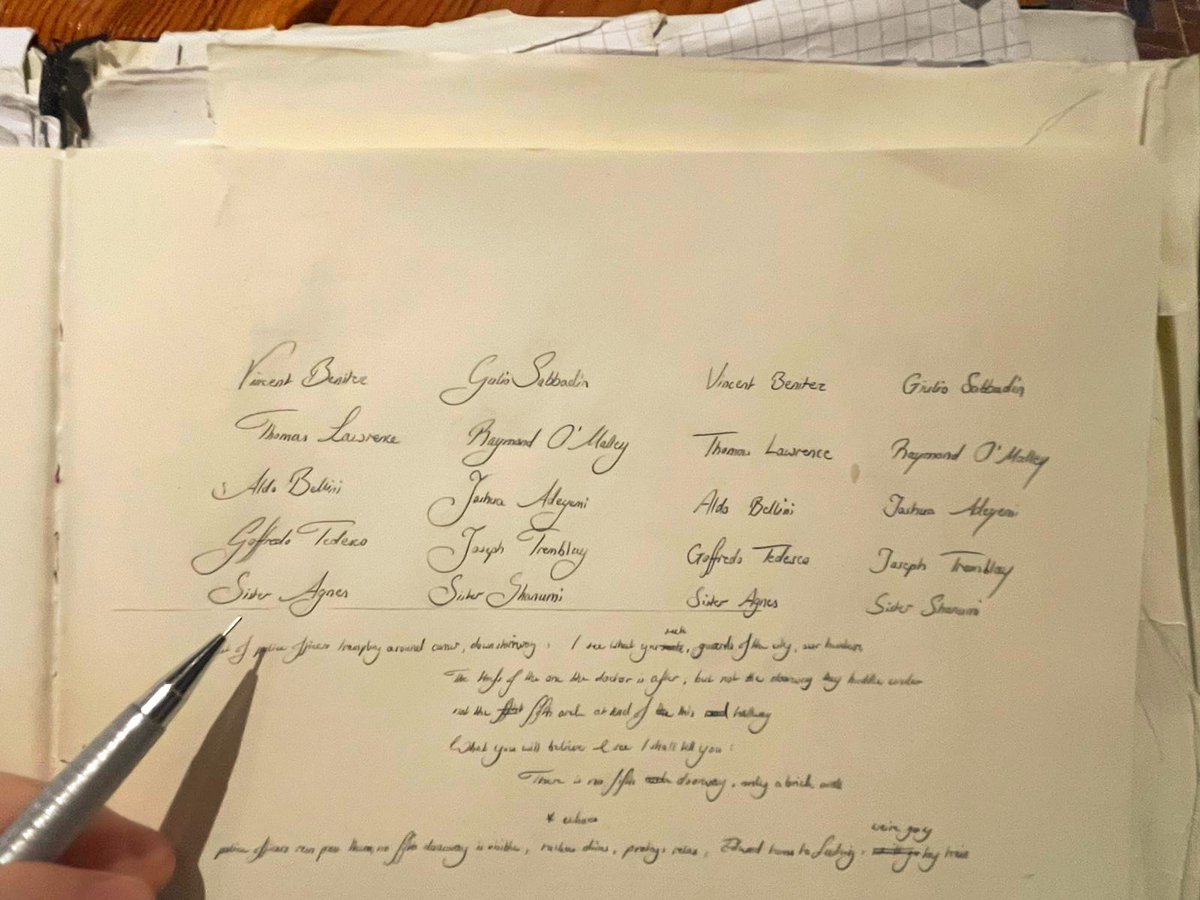 Vincent Benitez Giulio Sabbadin Vincent Benitez Giulio Sabbadin
Thomas Lawrence Raymond O'Malley Thomas Lawrence Raymond O'Malley
Aldo Bellini Joshua Adeyemi Aldo Bellini Joshua Adeyemi
Goffredo Tedesco Joseph Tremblay Goffredo Tedesco Joseph Tremblay
Sister Agnes Sister Shanumi Sister Agnes Sister Shanumi
seek
of police officers around corner, I see what guards of the city, our
The of the one the doctor is after, but not the doorway they huddle under
not the fifth and at end of this hallway
What you will believe I see I shall tell you:
There is no fifth doorway, only a brick wall
*
we're going
police officers run past them, no fifth doorway is visible, relax, Edward turns to